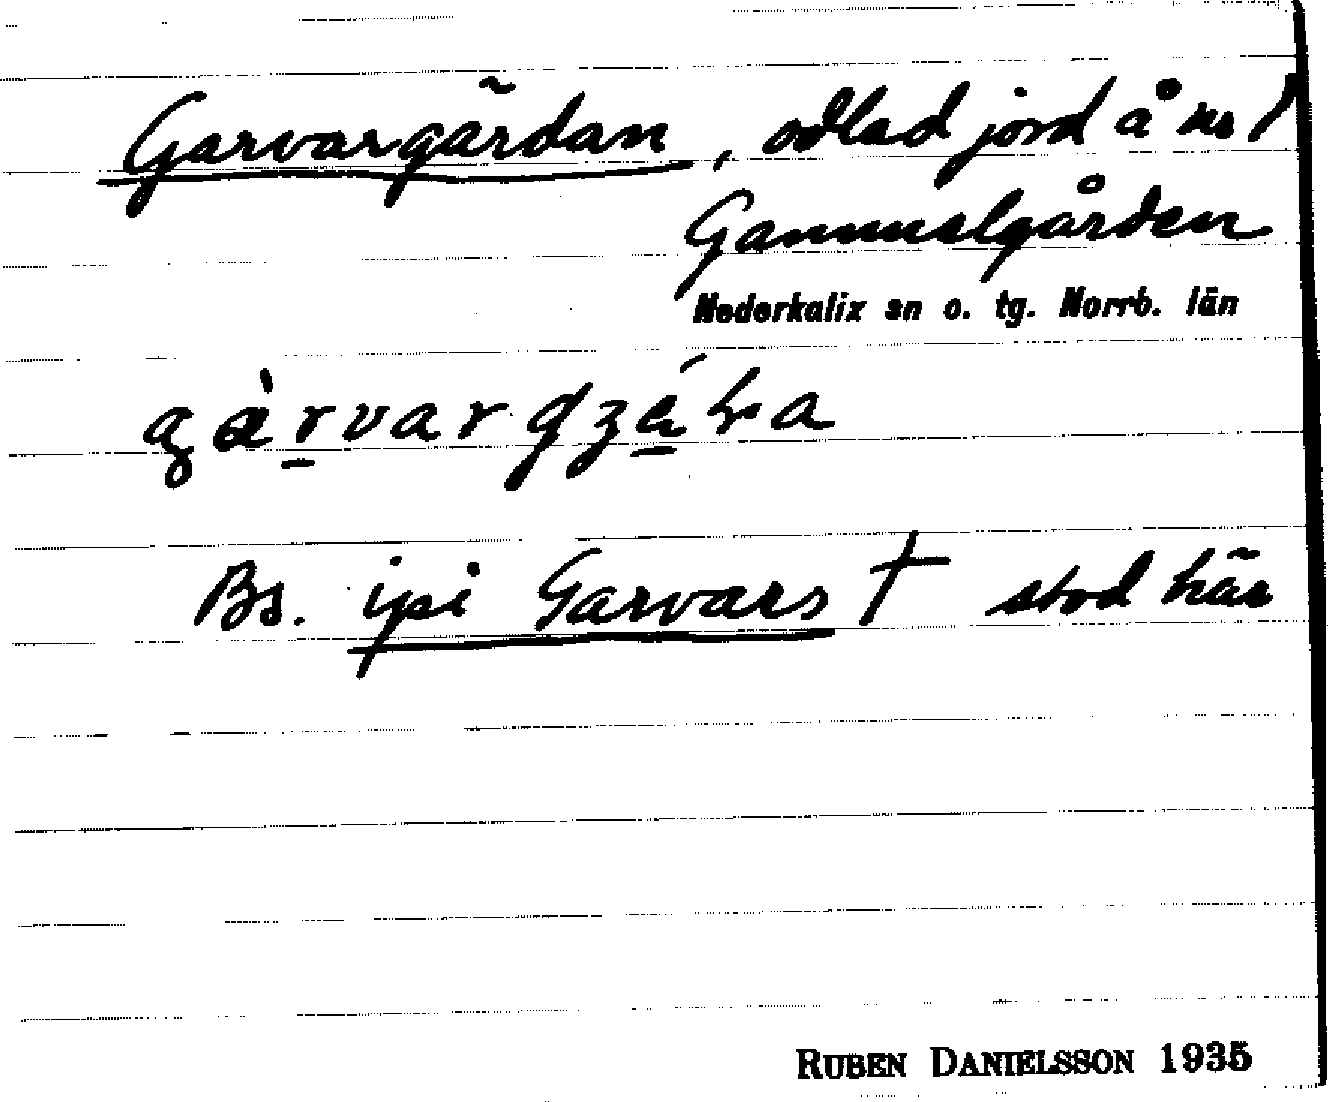 Garvargärdan, odlad jord å nr 1
Gammelgården
Nederkalix sn o. tg. Norrb. län
Bs. ipi Garvars † stod här
RUBEN DANIELSSON 1935